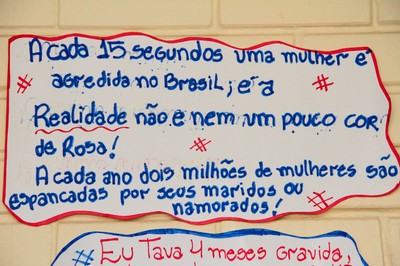 A cada 15 segundos uma mulher é
agredida no Brasil; e a
Realidade não é nem um pouco cor
de Rosa!
A cada ano dois milhões de mulheres são
espancadas por seus maridos ou
namorados!
Eu Tava 4 meses Gravida,